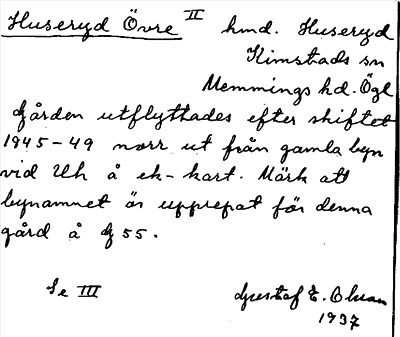 Huseryd Övre II hmd. Huseryd
Kimstads sn
Memmings hd. Ögl
Gården utflyttades efter skiftet
1845-49 norr ut från gamla byn
vid Uh å ek-kart. Märk att
bynamnet är upprepat för denna
gård å G 55.
Se III Gustaf E. Olson
1937